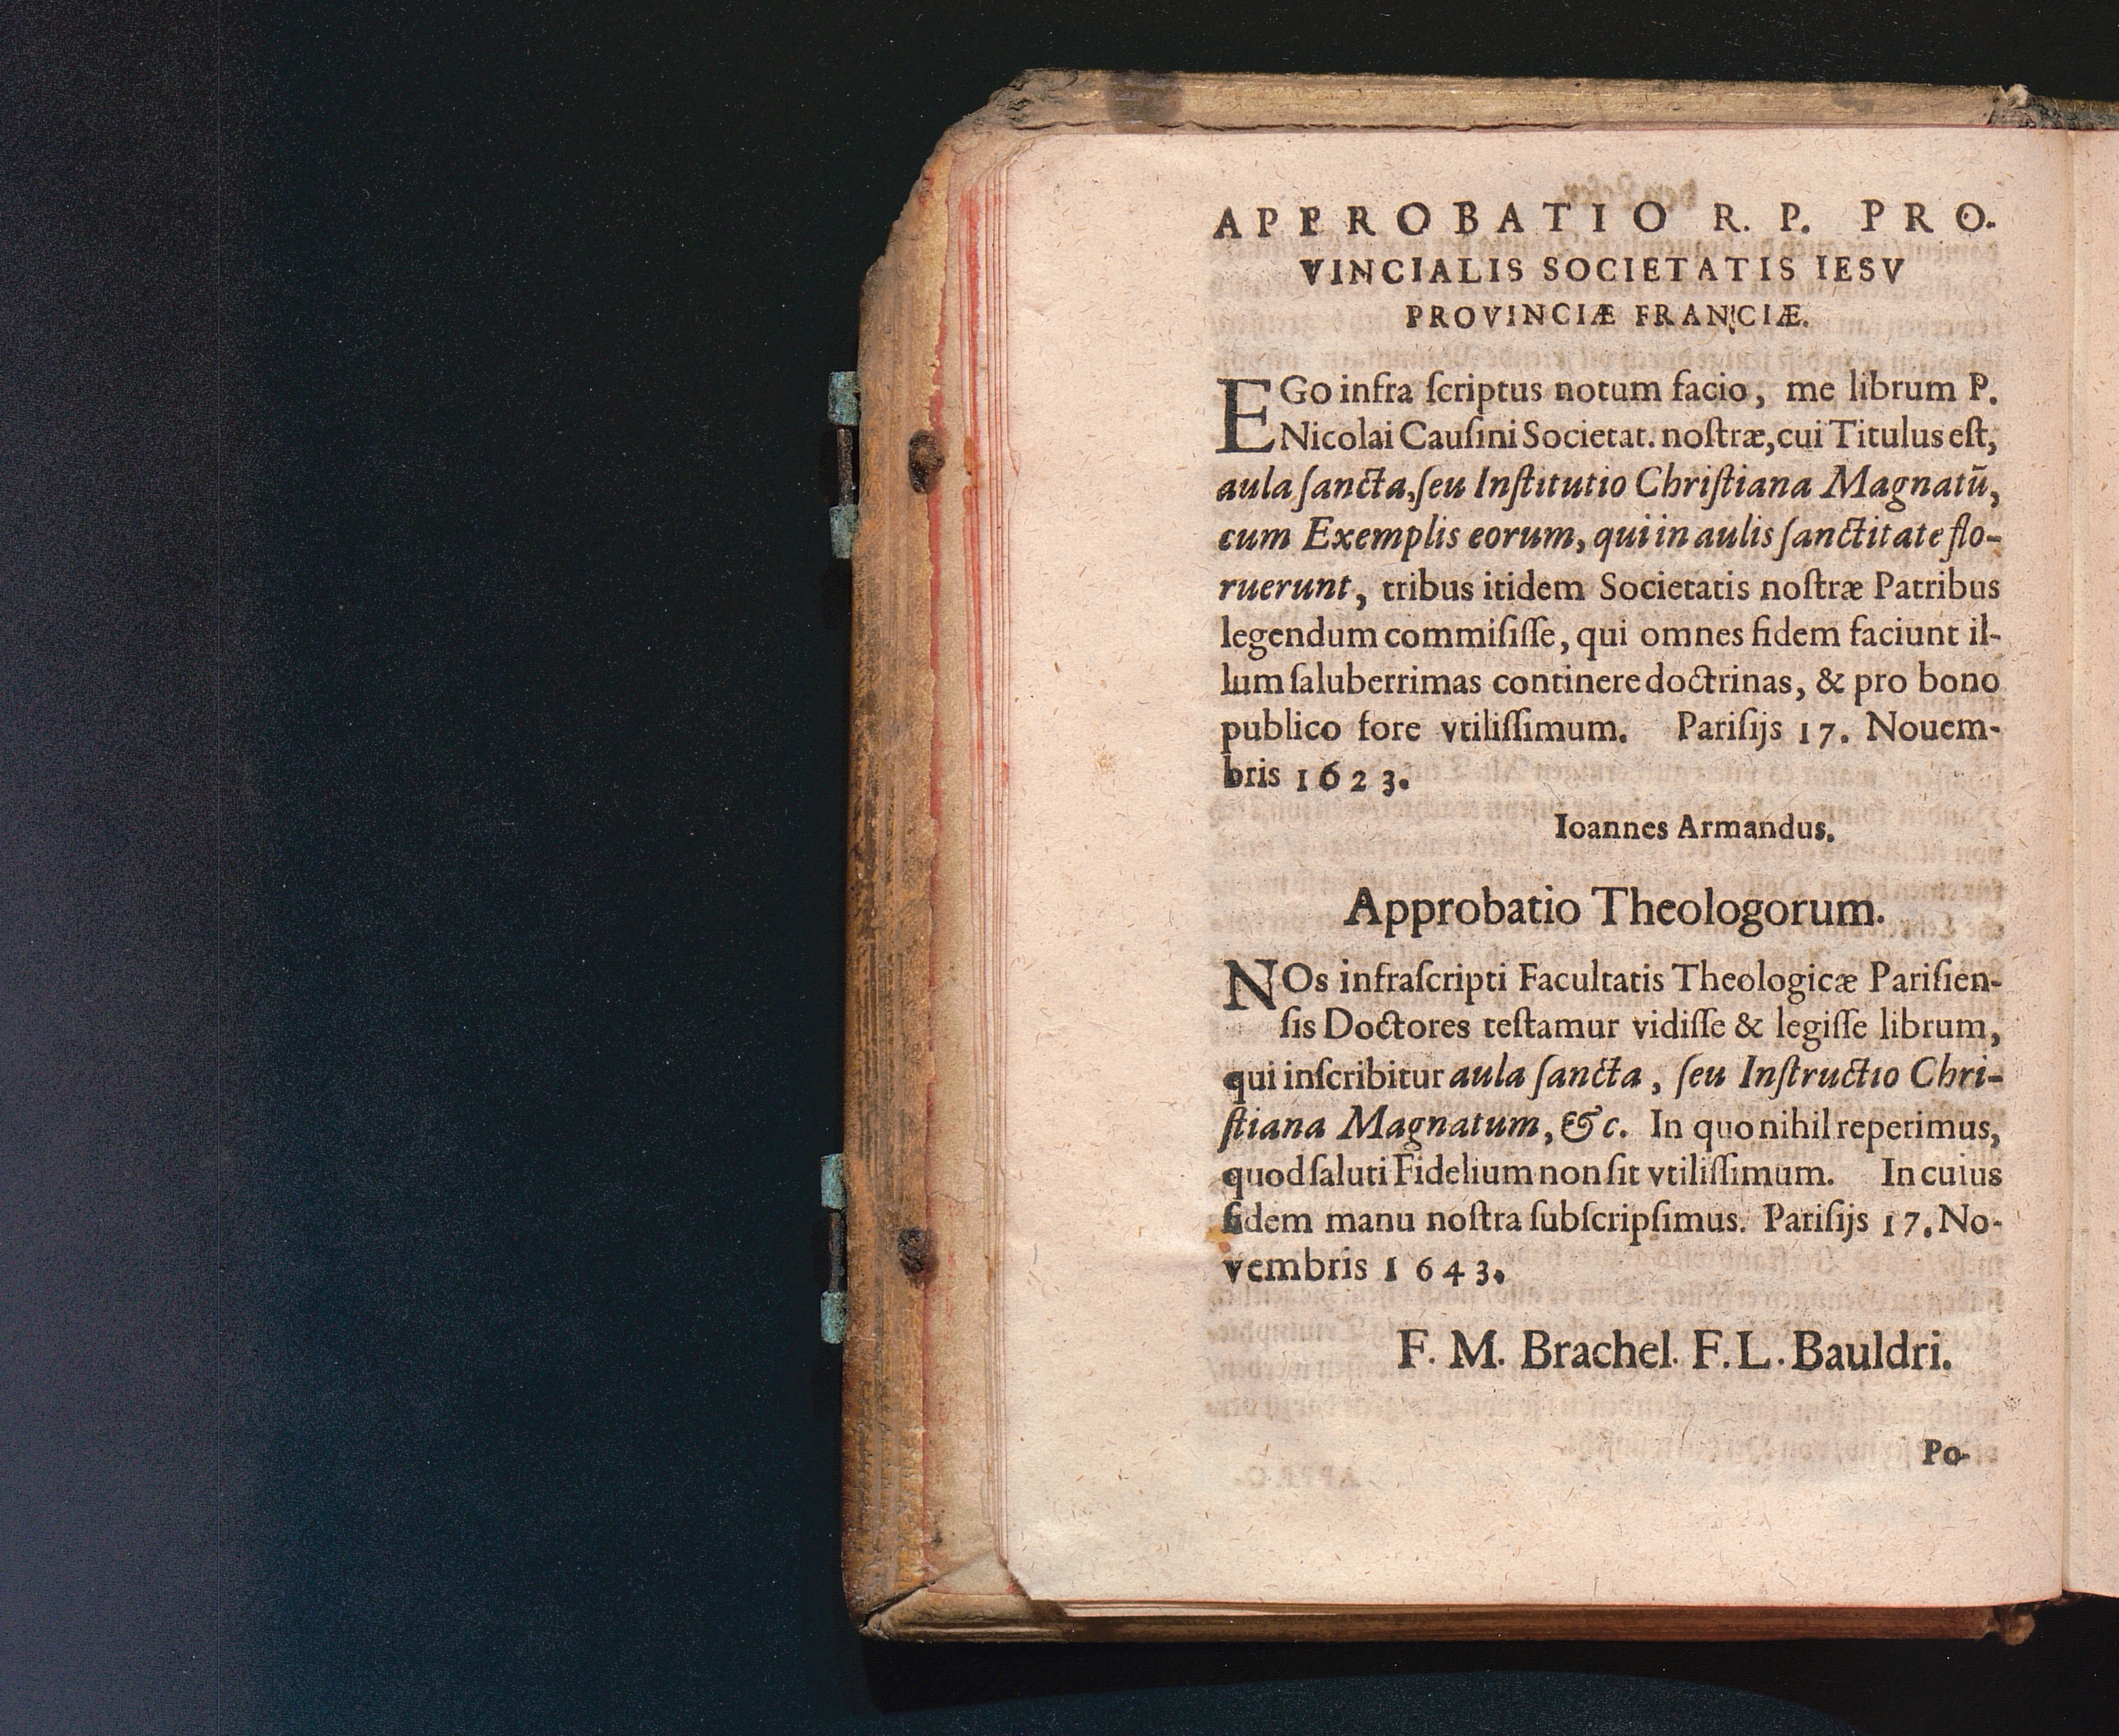 APPROBATIO R. P. PRO.
VINCIALIS SOCIETATIS IESV
PROVINCIÆ FRANCIÆ.
EGo infra ſcriptus notum facio, me librum P.
Nicolai Cauſini Societat. noſtræ, cui Titulus eſt,
aula ſancta, ſeu Inſtitutio Chriſtiana Magnatū,
cum Exemplis eorum, qui in aulis ſanctitate flo-
ruerunt, tribus itidem Societatis noſtræ Patribus
legendum commiſiſſe, qui omnes fidem faciunt il-
lum ſaluberrimas continere doctrinas, & pro bono
publico fore vtiliſſimum. Pariſijs 17. Nouem-
bris 1623.
Ioannes Armandus.
Approbatio Theologorum.
NOs infraſcripti Facultatis Theologicæ Pariſien-
ſis Doctores teſtamur vidiſſe & legiſſe librum,
qui inſcribitur aula ſancta, ſeu Inſtructio Chri-
ſtiana Magnatum, &c. In quo nihil reperimus,
quod ſaluti Fidelium non ſit vtiliſſimum. In cuius
fidem manu noſtra ſubſcripſimus. Pariſijs 17. No-
vembris 1643.
F. M. Brachel. F. L. Bauldri.
Po-